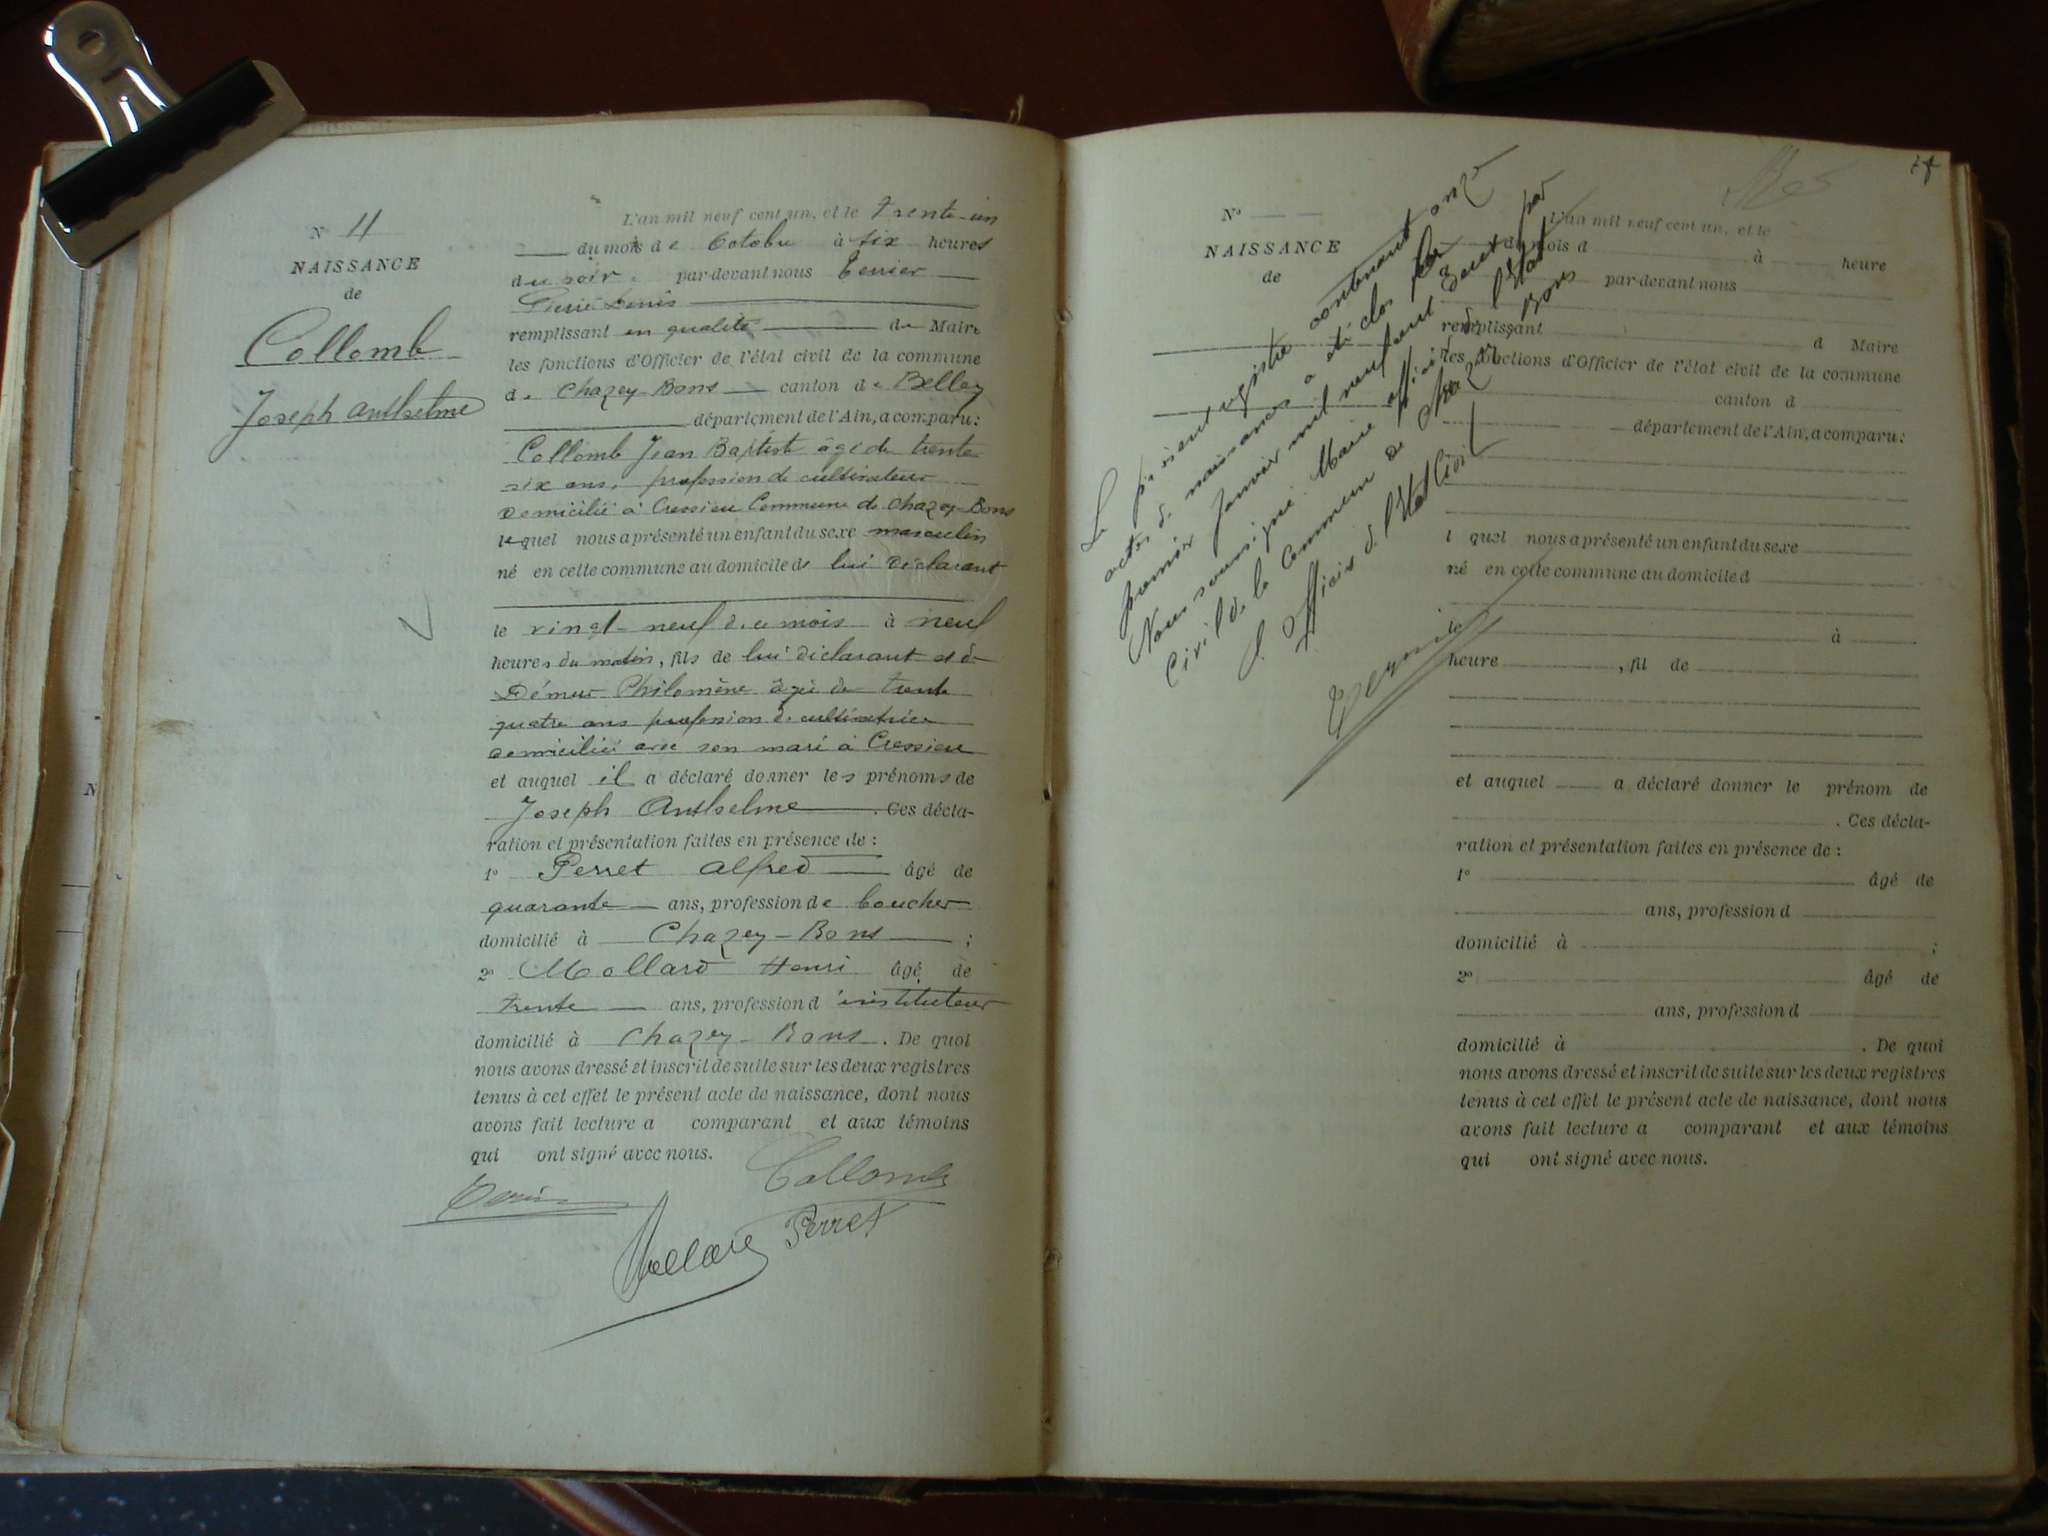 N° 11
NAISSANCE
de
Collomb
Joseph Anthelme
L'an mil neuf cent un, et le trente-un
du mois de Octobre à six heures
du soir, par-devant nous
Pierre Denis
remplissant en qualité de Maire
les fonctions d'Officier de l'état civil de la commune
de Chazey-Bons canton de Belley
département de l'Ain, a comparu:
Collomb Jean Baptiste âgé de trente
six ans, profession de cultivateur
domicilié à Cressieu Commune de Chazey-Bons
lequel nous a présenté un enfant du sexe masculin
né en cette commune au domicile de lui déclarant
le vingt-neuf de ce mois à neuf
heures du matin, fils de lui déclarant et de
Démeur Philomène âgée de trente
quatre ans profession de cultivatrice
domiciliée avec son mari à Cressieu
et auquel il a déclaré donner les prénoms de
Joseph Anthelme . Ces décla-
ration et présentation faites en présence de :
1° Perret Alfred âgé de
quarante ans, profession de boucher
domicilié à Chazey-Bons ;
2° Mollard Henri âgé de
trente ans, profession d'instituteur
domicilié à Chazey-Bons . De quoi
nous avons dressé et inscrit de suite sur les deux registres
tenus à cet effet le présent acte de naissance, dont nous
avons fait lecture a comparant et aux témoins
qui ont signé avec nous.
Collomb
Mollard Perret
Le présent registre contenant onze
actes de naissances a été clos le
premier Janvier mil neuf cent deux par
Nous soussigné Maire officier de l'Etat
Civil de la Commune de Chazey Bons
L'Officier de l'Etat Civil
N°
NAISSANCE
de
L'an mil neuf cent un, et le
du mois d à heure
par-devant nous
remplissant d Maire
les fonctions d'Officier de l'état civil de la commune
canton d
département de l'Ain, a comparu:
l quel nous a présenté un enfant du sexe
né en cette commune au domicile d
le à
heure , fil de
et auquel a déclaré donner le prénom de
. Ces décla-
ration et présentation faites en présence de :
1° âgé de
ans, profession d
domicilié à ;
2° âgé de
ans, profession d
domicilié à . De quoi
nous avons dressé et inscrit de suite sur les deux registres
tenus à cet effet le présent acte de naissance, dont nous
avons fait lecture a comparant et aux témoins
qui ont signé avec nous.